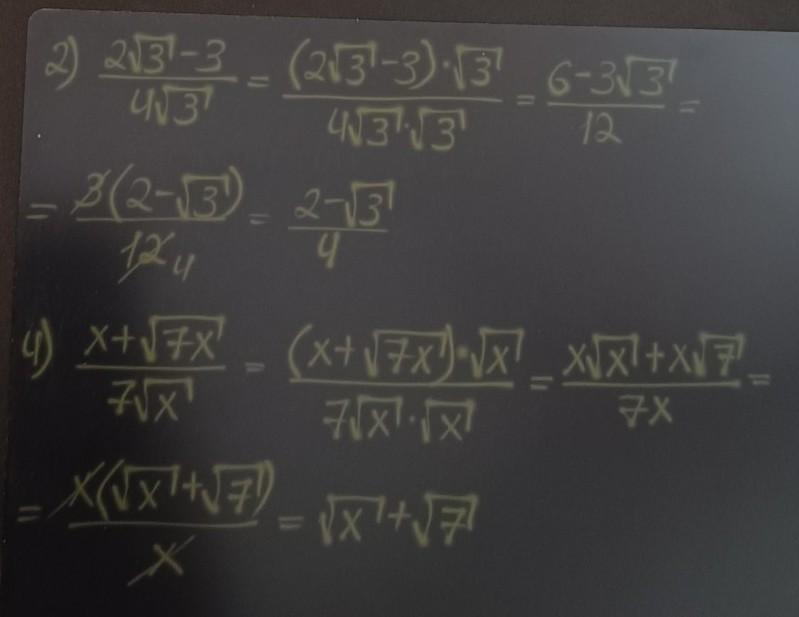 2) (2√3 - 3)/(4√3) = ((2√3 - 3)·√3)/(4√3·√3) = (6 - 3√3)/12 =
= 3(2 - √3)/12 4 = (2 - √3)/4
4) (x + √7x)/(7√x) = ((x + √7x)·√x)/(7√x·√x) = (x√x + x√7)/(7x) =
= x(√x + √7)/x = √x + √7